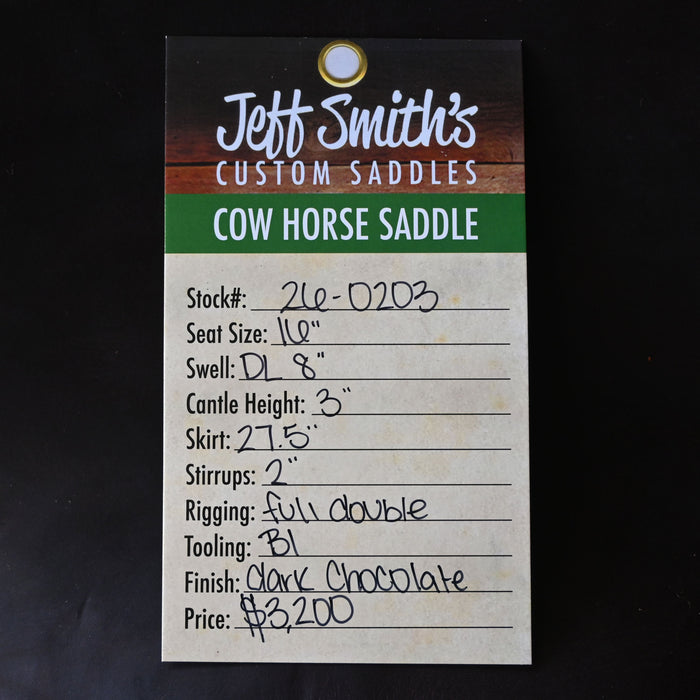 Jeff Smith's
CUSTOM SADDLES
COW HORSE SADDLE
Stock#: 26-0203
Seat Size: 16"
Swell: DL 8"
Cantle Height: 3"
Skirt: 27.5"
Stirrups: 2"
Rigging: full double
Tooling: BI
Finish: dark Chocolate
Price: $3,200